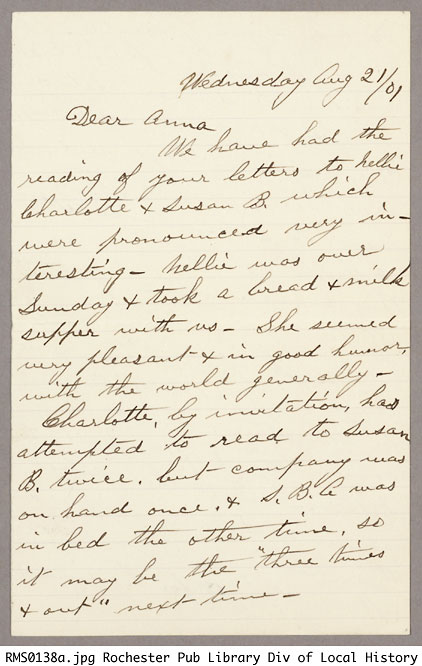 Wednesday Aug 21/01
Dear Anna
We have had the
reading of your letters to Nellie
Charlotte & Susan B. which
were pronounced very in-
teresting - Nellie was over
Sunday & took a bread & milk
supper with us - She seemed
very pleasant & in good humor,
with the world generally -
Charlotte, by invitation, has
attempted to read to Susan
B. twice. but company was
on hand once, & S. B. A was
in bed the other time, so
it may be the "three times
& out" next time -
RMS0138a.jpg Rochester Pub Library Div of Local History